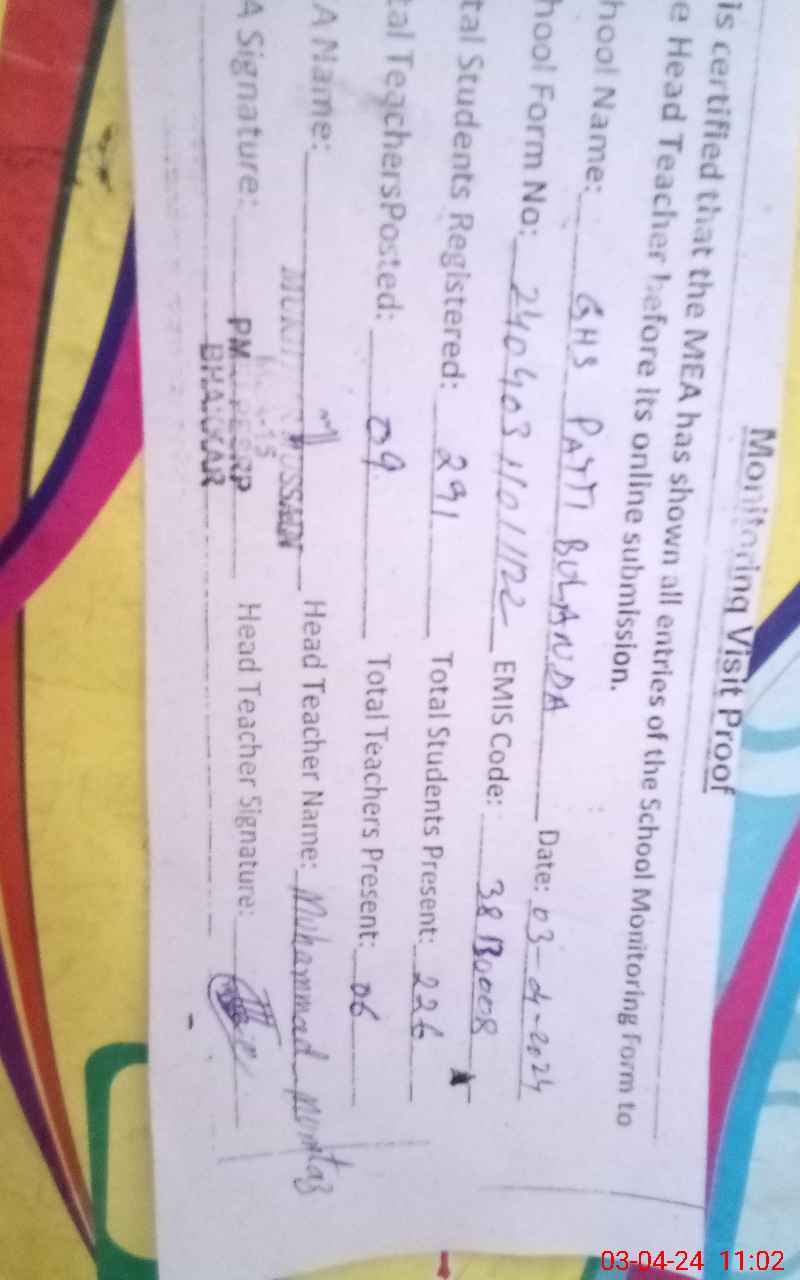 Monitoring Visit Proof
is certified that the MEA has shown all entries of the School Monitoring Form to
e Head Teacher before its online submission.
hool Name: GHS PATTI BULANDA Date: 03-04-2024
hool Form No: 240403 1101122 EMIS Code: 38130008
tal Students Registered: 291 Total Students Present: 226
tal TeachersPosted: 09 Total Teachers Present: 06
A Name: HUSSAIN Head Teacher Name: Muhammad Mumtaz
A Signature: Head Teacher Signature:
BHAKKAR
03-04-24 11:02